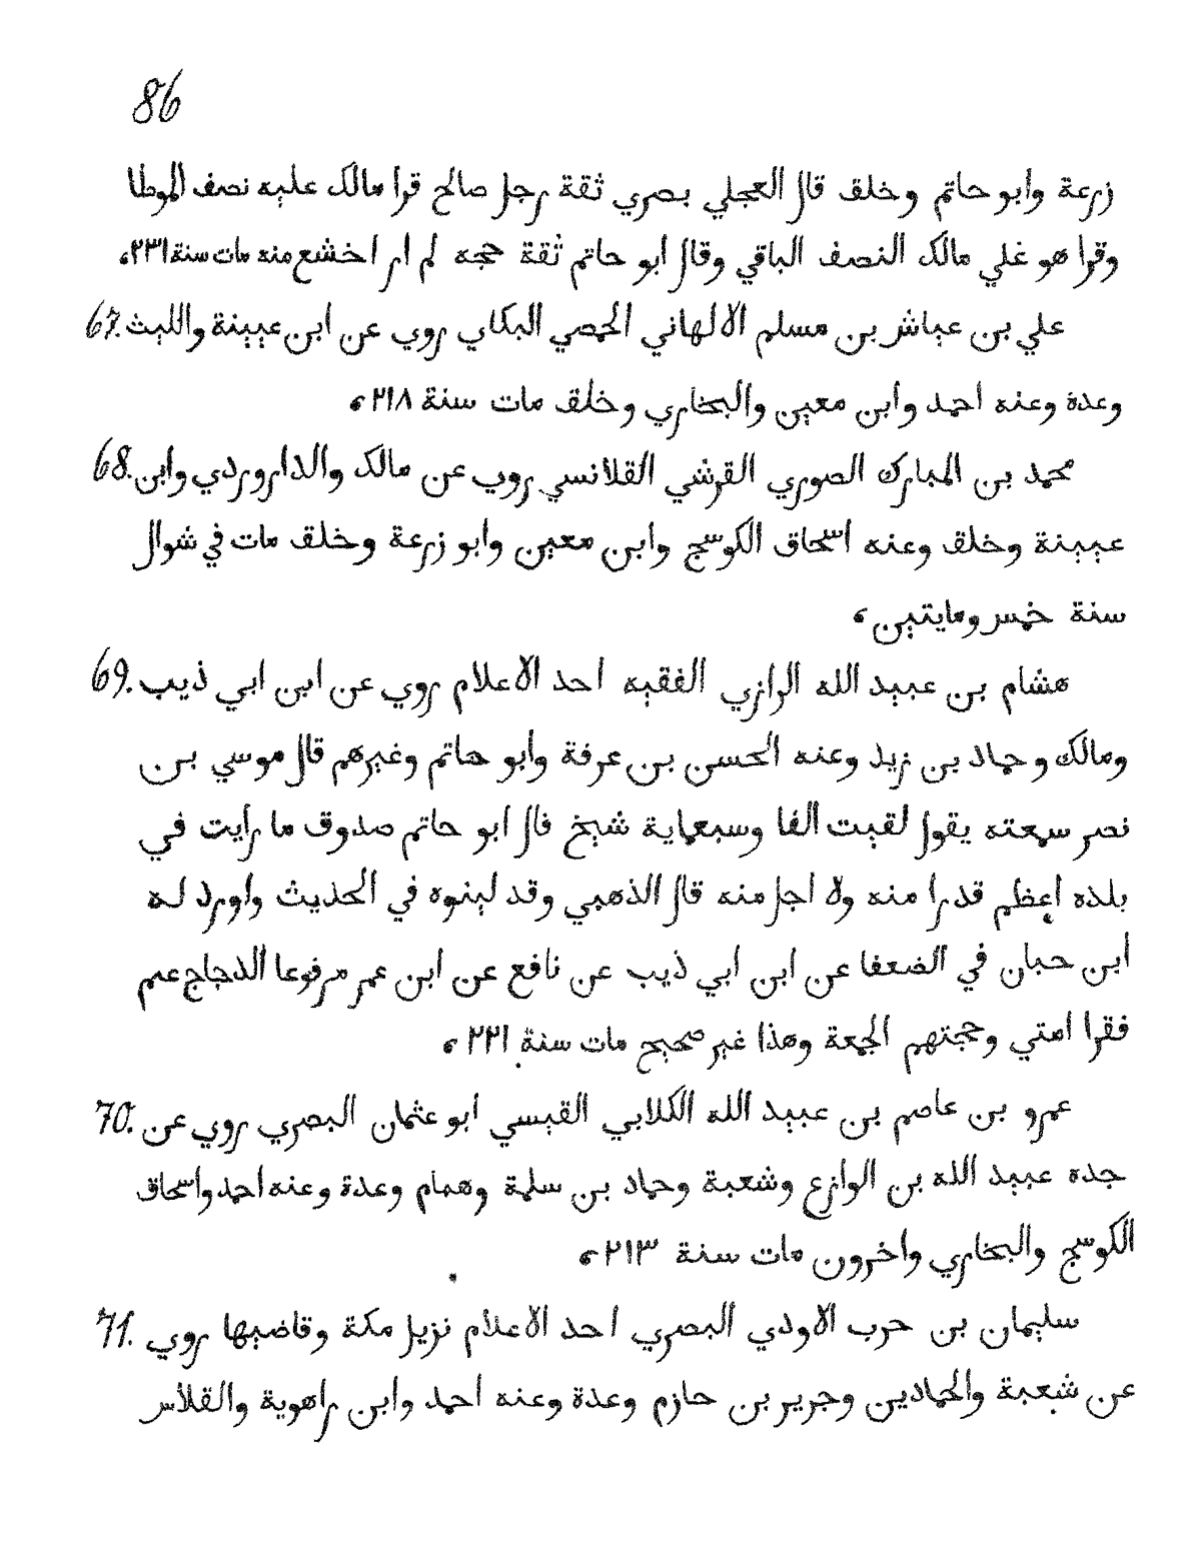 86
زرعة وابو حاتم وخلق قال العجلي بصري ثقة رجل صالح قرا مالك عليه نصف الموطا
وقرا هو علي مالك النصف الباقي وقال ابو حاتم ثقة حجه لم ار اخشع منه مات سنة ٢٣١،
67. علي بن عياش بن مسلم الالهاني الحمصي البكاي روي عن ابن عيينة والليث
وعدة وعنه احمد وابن معين والبخاري وخلق مات سنة ٢١٨،
68. محمد بن المبارك الصوري القرشي القلانسي روي عن مالك والداروردي وابن
عيينة وخلق وعنه اسحاق الكوسج وابن معين وابو زرعة وخلق مات في شوال
سنة خمس ومايتين،
69. هشام بن عبيد الله الرازي الفقيه احد الاعلام روي عن ابن ابي ذيب
ومالك وحماد بن زيد وعنه الحسن بن عرفة وابو حاتم وغيرهم قال موسي بن
نصر سمعته يقول لقيت الفا وسبعماية شيخ قال ابو حاتم صدوق ما رايت في
بلده اعظم قدرا منه ولا اجل منه قال الذهبي وقد لينوه في الحديث واورد له
ابن حبان في الضعفا عن ابن ابي ذيب عن نافع عن ابن عمر مرفوعا الدجاج غنم
فقرا امتي وحجتهم الجمعة وهذا غير صحيح مات سنة ٢٢١،
70. عمرو بن عاصم بن عبيد الله الكلابي القيسي ابو عثمان البصري روي عن
جده عبيد الله بن الوازع وشعبة وحماد بن سلمة وهمام وعدة وعنه احمد واسحاق
الكوسج والبخاري واخرون مات سنة ٢١٣،
71. سليمان بن حرب الاودي البصري احد الاعلام نزيل مكة وقاضيها روي
عن شعبة والحمادين وجرير بن حازم وعدة وعنه احمد وابن راهوية والقلاس